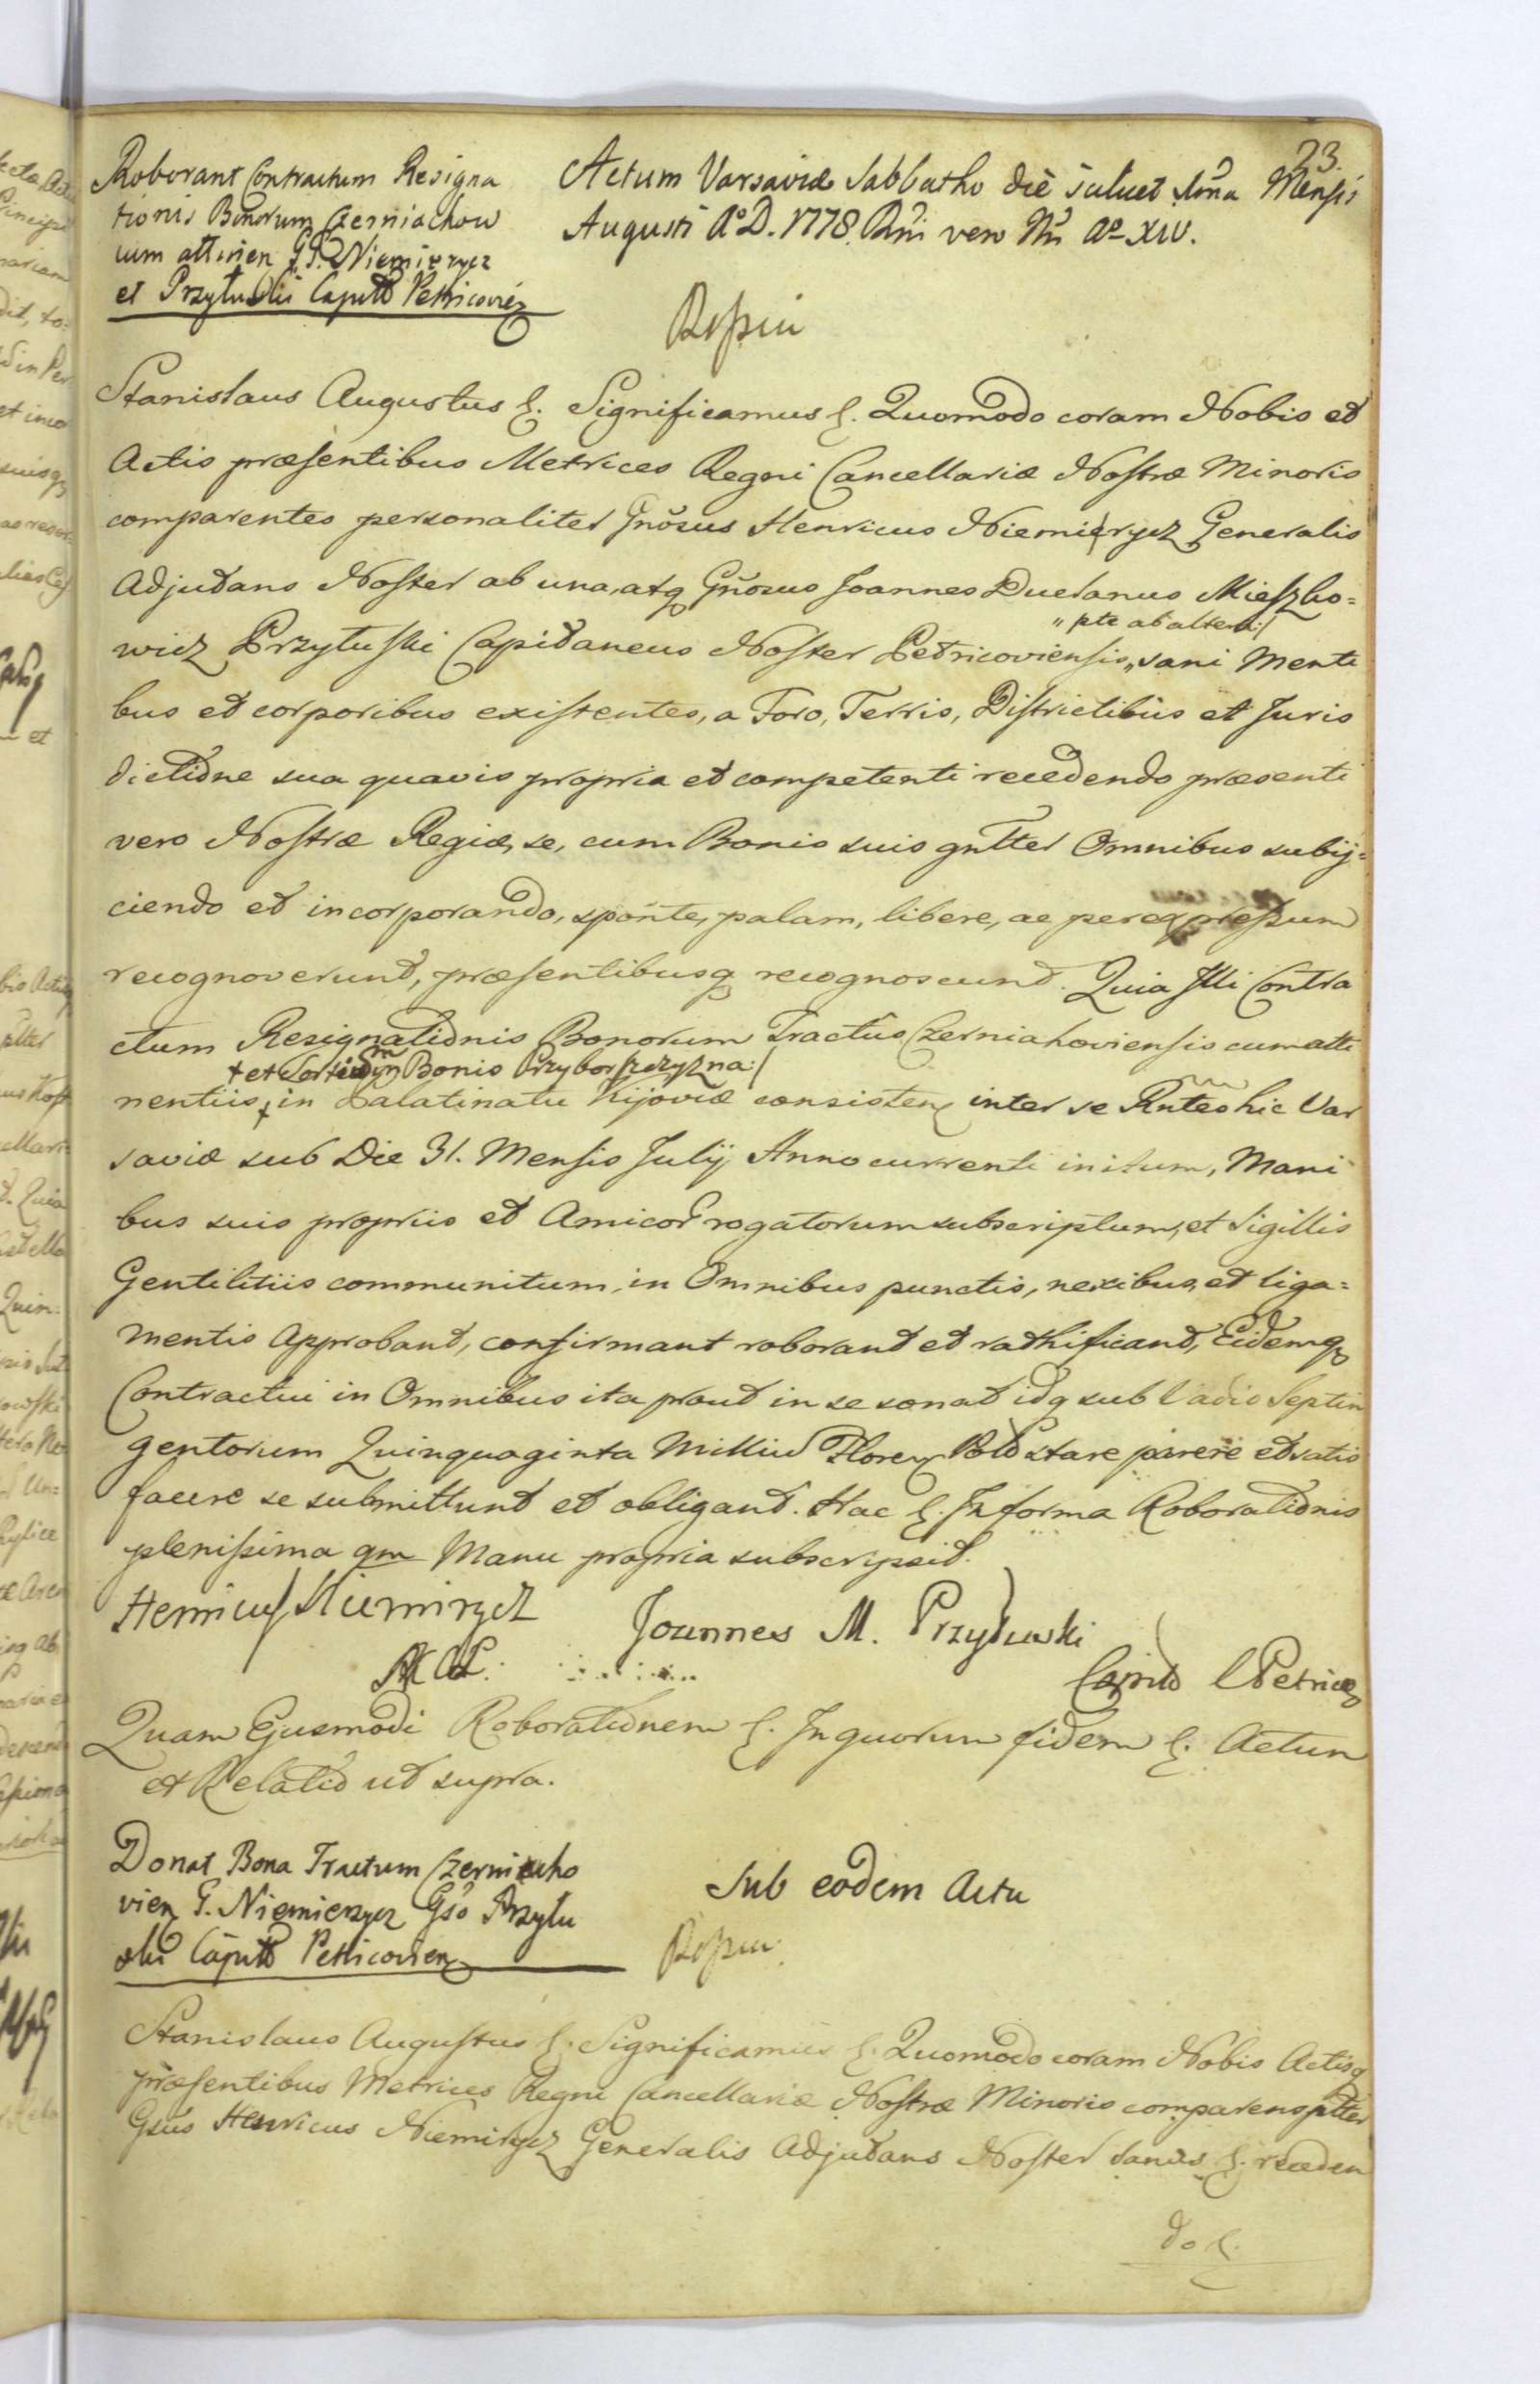 23.
Roborant Contractum Resigna
tionis Bonorum Czerniachow
cum attinen GG. Niemierycz
et Przyłuski Capitt Petricovien
Actum Varsaviæ Sabbatho die scilicet 1ma Mensis
Augusti A° D. 1778. Rni vero Nri A° XIV.
Stanislaus Augustus &. Significamus &. Quomodo coram Nobis et
Actis præsentibus Metrices Regni Cancellariæ Nostræ Minoris
comparentes personaliter Gnosus Henricus Niemierycz Generalis
Adjutans Noster ab una, atq Gnosus Joannes Duclanus Mieszko=
" pte ab altera:/
wicz Przyłuski Capitaneus Noster Petricoviensis,, sani Menti
bus et corporibus existentes, a Foro, Terris, Districtibus et Juris
dictione sua quavis propria et competenti recedendo præsenti
vero Nostræ Regiæ, se, cum Bonis suis gntter Omnibus subij=
ciendo et incorporando, sponte, palam, libere, ac per expressum
recognoverunt, præsentibusq recognoscunt. Quia Illi Contra
ctum Resignationis Bonorum Tractus Czerniahoviensis cum atti
+ et Sortium in Bonis Przyborszczyzna:/
nentiis + in Palatinatu Kijoviæ consisten inter se Rntes hic Var
saviæ sub Die 31. Mensis Julij Anno currenti initum, Mani
bus suis propriis et Amicor rogatorum subscriptum, et Sigillis
Gentilitiis communitum, in Omnibus punctis, nexibus, et liga=
mentis Approbant, confirmant roborant et rathificant, Eidemq
Contractui in Omnibus ita prout in se sonat idq sub Vadio Septin
gentorum Quinquaginta Milliu Floren Pold stare parere et satis
facere se submittunt et obligant. Hac &. In forma Roborationis
plenissima qm Manu propria subscripsit.
Henricus Niemirycz
Joannes M. Przyłuski
Capitt Petrico
Quam Ejusmodi Roborationem &. In quorum fidem &. Actum
et Relatio ut supra.
Donat Bona Tractum Czerniacho
vien G. Niemierycz Gso Przyłu
ski Capitt Petricovien
Sub eodem Actu
Stanislaus Augustus &. Significamus &. Quomodo coram Nobis Actisq
præsentibus Metrices Regni Cancellariæ Nostræ Minoris comparens pltter
Gsus Henricus Niemirycz Generalis Adjutans Noster sanus &. receden
do &.